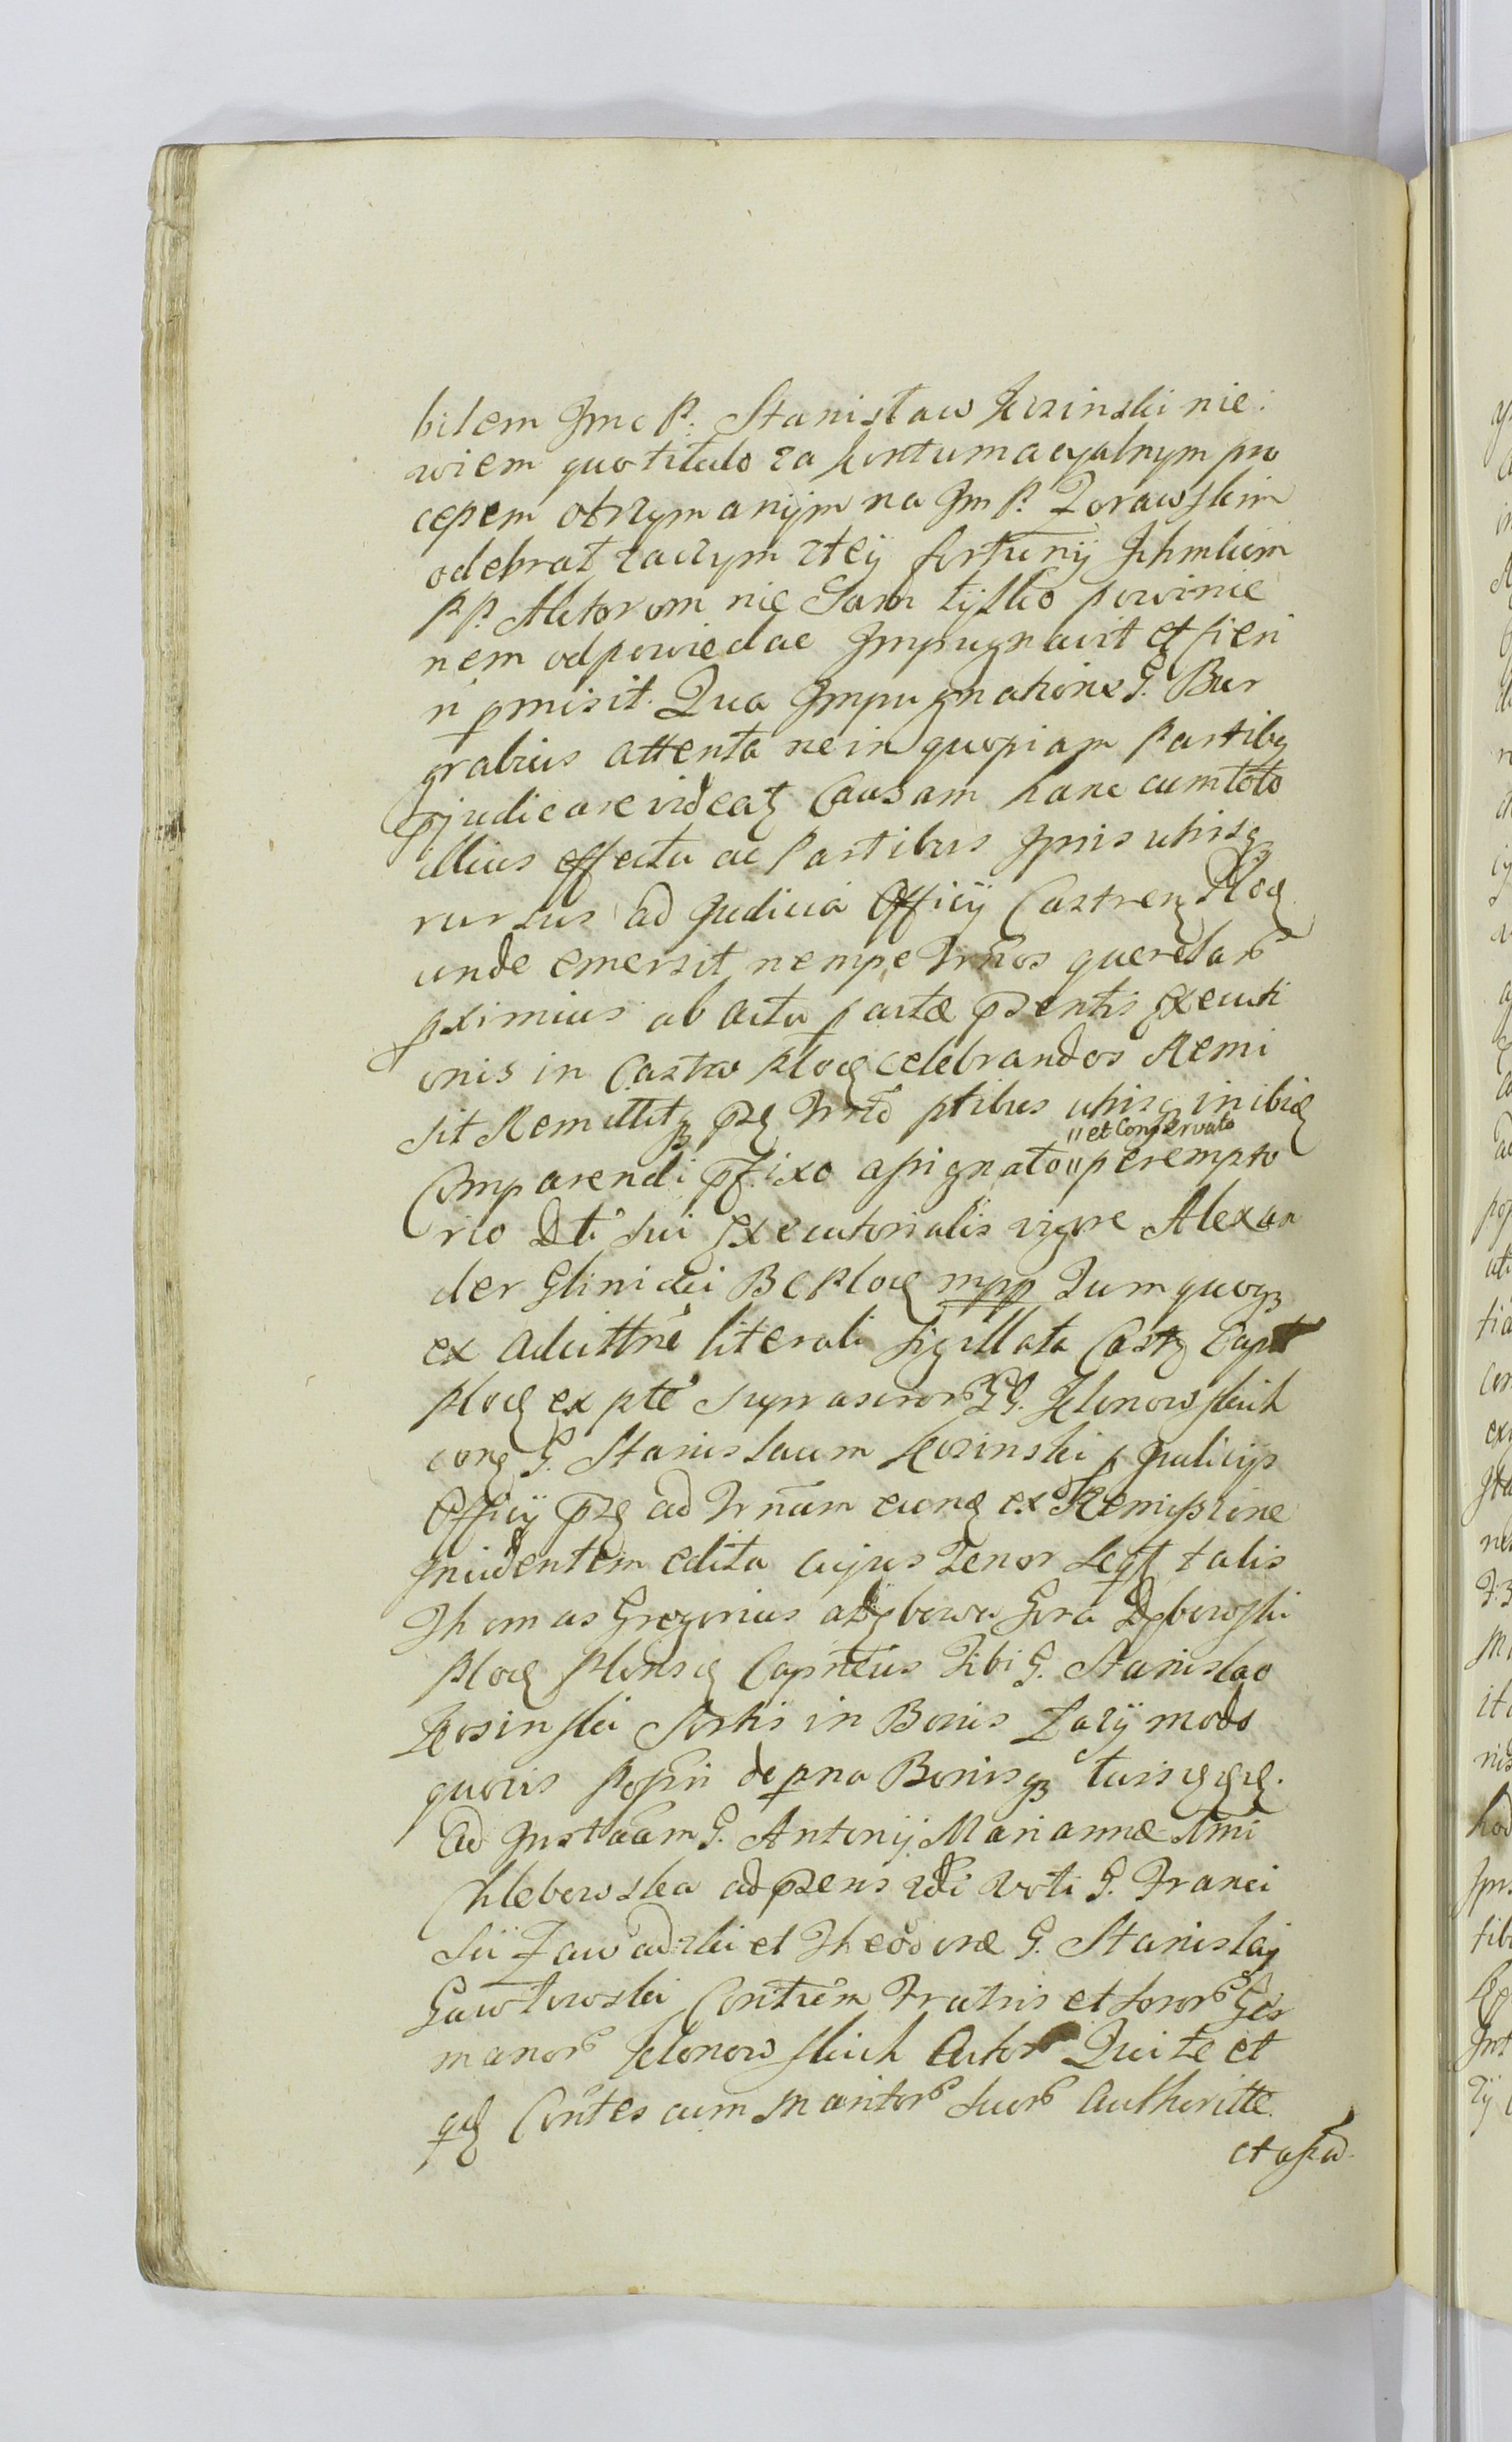 bilem Jmc P. Stanisław Kosinski nie
wiem quo titulo za kontumacyalnym pro
cessem otrzymanym na Jm P. Zorawskim
odebrał zaczym z tey fortuny Ichmściom
PP. Aktorom nie Sam tylko powinie
nem odpowiedac Impugnavit et fieri
n pmisit. Qua Impugnatione G. Bur
grabius attenta ne in quopiam Partibq
pjudicare videatq Causam hanc cum toto
illius effectu ac Partibus Ipsis utrisq
rursus ad Judicia Officij Castrenq Plocq
unde emersit nempe Trnos querelar
pximius ab actu pactæ psentis Executi
onis in Castro Plocq celebrandos Remi
sit Remittitq pzq Trno ptibus utrisq inibiq
Comparendi pfixo assignato "et Conservato" perempto
rio Dti sui Executorialis vigore Alexan
der Glinicki B C Plocq mpp Tum quoq
ex Adcittne literali Sigillata Castq Capt
Plocq ex pte suprascror GG. Klonowskich
conq G. Stanislaum Kosinski p Judicijs
Officij pzq ad Trnum eumq ex Remissione
Incidentem edita cujus Tenor seqt talis
Thomas Gregorius a Dębowa Gora Dębowski
Plocq Plonsq Capneus Tibi G. Stanislao
Kosinski Sortis in Bonis Zazij modo
quovis Possri de psna Bonisq tuis qqq.
Ad Instaam G. Antonij Mariannæ Imi
Chlebowska ad psens 2di Voti G. Franci
sci Zawadzki et Theodoræ G. Stanislaj
Gawłowski Contium Fratris et soror Ger
manor Klonowskich Actor Quite et
qq Contes cum Maritor suor Authoritte
et assa